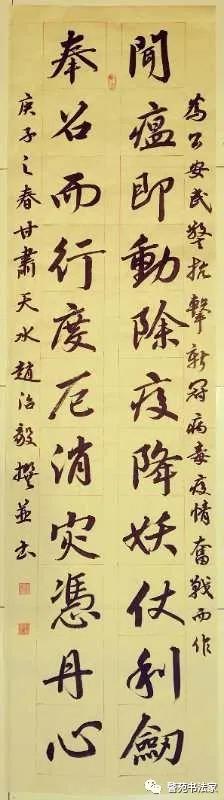 为公安民警抗击新冠病毒疫情奋战而作
聞瘟即動除疫降妖仗利劍
奉召而行度厄消灾憑丹心
庚子之春甘肃天水趙治毅撰並书
警苑书法家